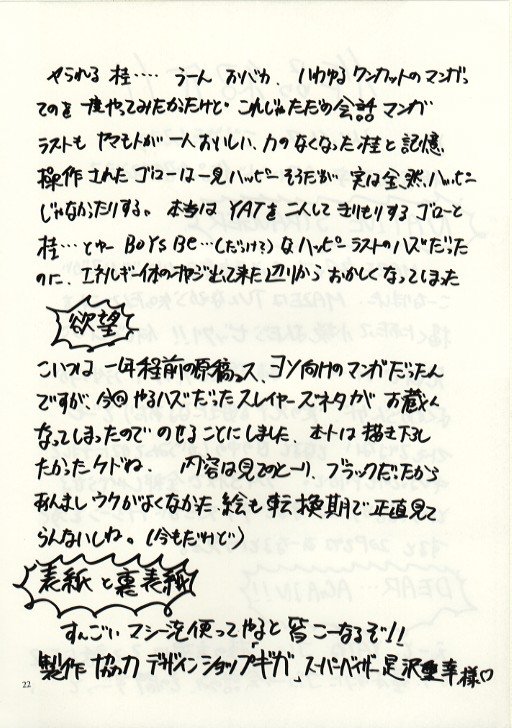 やられる 桂‥‥ うーん おバカ、 いわゆるワンカットのマンガっ
てのを一度やってみたかったけど。これじゃただの会話マンガ
ラストも ヤマモトが一人おいしい、力のなくなった桂と記憶
操作されたゴローは一見ハッピーそうだが 実は全然ハッピー
じゃなかったりする。 本当は YATを二人して きりもりするゴローと
桂…とゆー BOYS BE…(だっけ?)なハッピーラストのハズだった
のに、エネルギー体のオヤジ出て来た辺りから おかしくなってしまった
欲望
こいつは 一年程前の原稿っス、ヨソ向けのマンガだったん
ですが、今回やるハズだったスレイヤーズネタが お蔵ん
なってしまったので のせることにしました。ホントは描き下し
たかったケドね。 内容は見てのとーり、ブラックだったから
あんましウケがよくなかった、絵も転換期で正直見て
らんないしね。(今もだけど)
表紙と裏表紙
すんごい マシーン使ってやると皆こーなるぞ!!
製作 協力 デザインショップ「ギガ」スーパーバイザー足沢重幸様♡
22